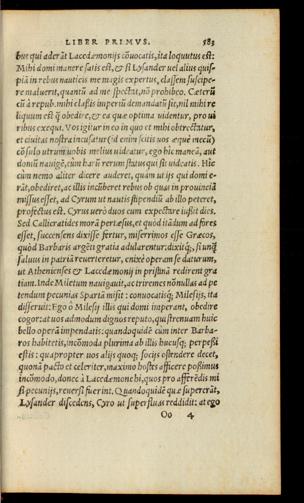 LIBER PRIMVS. 583
bus qui aderāt Lacedæmonijs cōuocatis, ita loquutus est:
Mihi domi manere satis est, & si Lysander uel alius quis-
piā in rebus nauticis me magis expertus, classem suscipe-
re maluerit, quantū ad me spectat, nō prohibeo. Cæterū
cū à repub. mihi classis imperiū demandatū sit, nil mihi re
liquum est q̄ obedire, & ea quæ optima uidentur, pro ui
ribus exequi. Vos igitur in eo in quo et mihi obtrectātur,
et ciuitas nostra incusatur (id enim scitis uos æquè mecū)
cōsulo utrum uobis melius uideatur, ego hic maneā, aut
domū nauigē, cùm harū rerum status qui sit uideatis. Hic
cùm nemo aliter dicere auderet, quam ut ijs qui domi e-
rāt, obediret, ac illis inciberet rebus ob quas in prouinciā
missus esset, ad Cyrum ut nautis stipendiū ab illo peteret,
profectus est. Cyrus uerò duos cum expectare iussit dies.
Sed Callicratides mora pertæsus, et quòd itādum ad fores
esset, succensens dixisse fertur, miserrimos esse Græcos,
quòd Barbaris argēti gratia adularentur: dixitq́;, si unq̄
saluus in patriā reuerteretur, enixè operam se daturum,
ut Athenienses & Lacedæmonij in pristinā redirent gra
tiam. Inde Miletum nauigauit, ac triremes nōnullas ad pe
tendum pecunias Spartā misit: conuocatisq́; Milesijs, ita
disseruit: Ego ô Milesij illis qui domi imperant, obedire
cogor: at uos admodum dignos reputo, qui strenuam huic
bello operā impendatis: quandoquidē cùm inter Barba-
ros habitetis, incōmoda plurima ab illis hucusq; perpessi
estis: quapropter uos alijs quoq; socijs ostendere decet,
quonā pacto et celeriter, maximo hostes afficere possimus
incōmodo, donec à Lacedæmone hi, quos pro afferēdis mi
si pecunijs, reuersi fuerint. Quandoquidē quæ supererāt,
Lysander discedens, Cyro ut superfluas reddidit: at ego
Oo 4